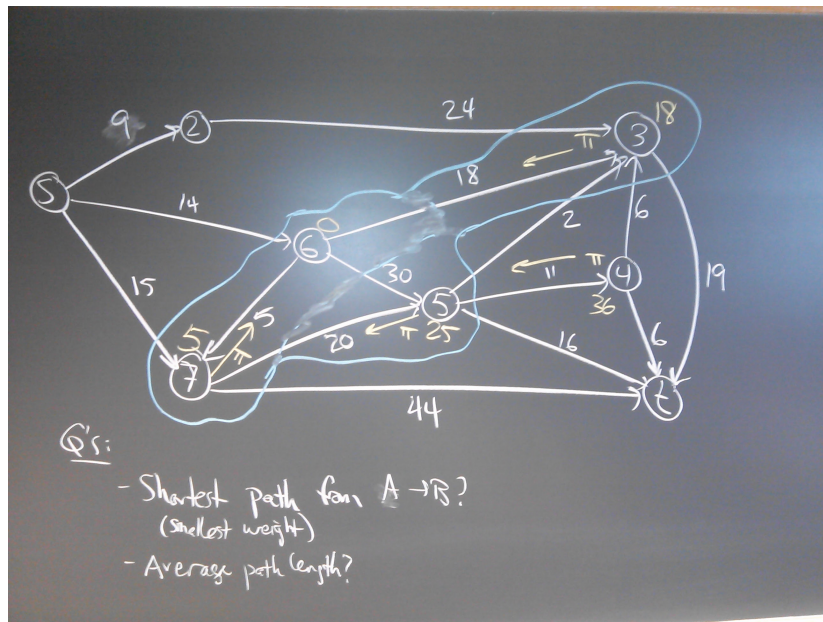 9
2
24
3
18
π
18
S
14
6
0
2
6
19
15
30
π
11
4
36
5
5
5
25
π
π
7
20
16
6
44
t
Q's:
- Shortest path from A → B?
(smallest weight)
- Average path length?